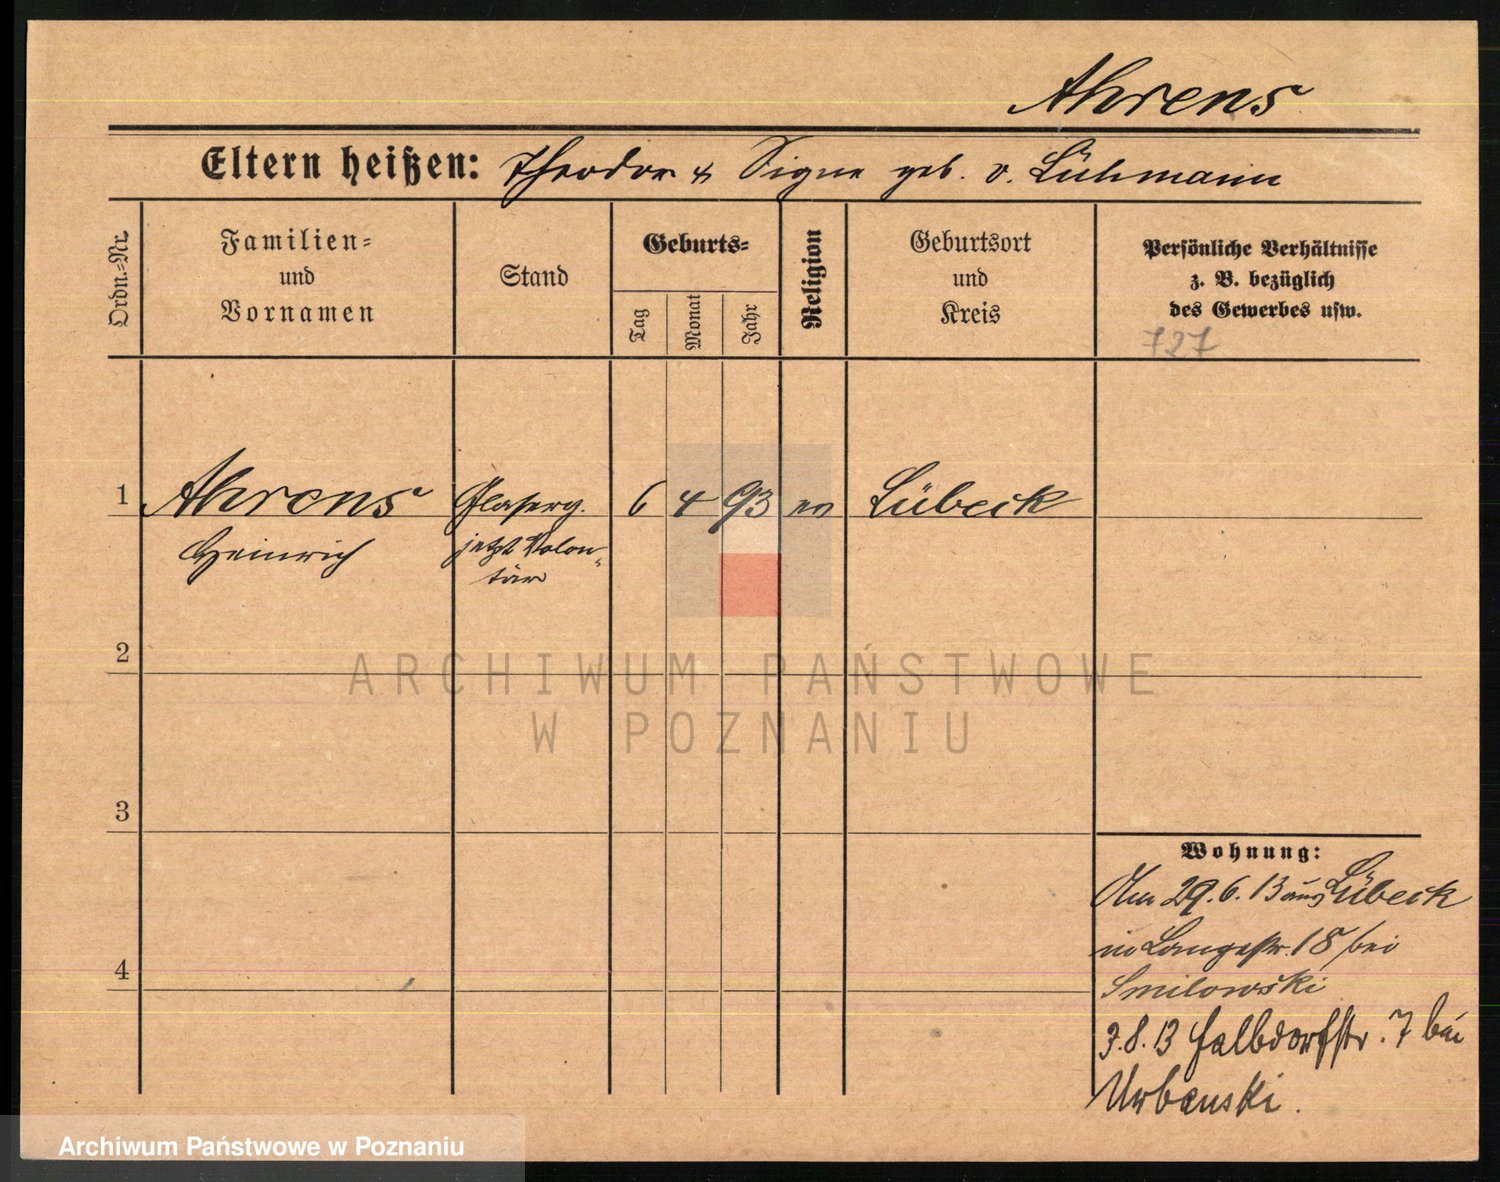 Ahrens
Eltern heißen: Theodor & Signe geb. v. Lühmann
Ordn.-Nr.
Familien-
und
Vornamen
Stand
Geburts-
Tag
Monat
Jahr
Religion
Geburtsort
und
Kreis
Persönliche Verhältnisse
z. B. bezüglich
des Gewerbes usw.
727
1 Ahrens Glaserg. 6 4 93 ev Lübeck
Heinrich jetzt Volon-
tär
2
ARCHIWUM PAŃSTWOWE
W POZNANIU
3
Wohnung:
Am 29.6.13 aus Lübeck
in Langestr. 18 bei
4
Smilowski
3.8.13 Halbdorfstr. 7 bei
Urbanski.
Archiwum Państwowe w Poznaniu